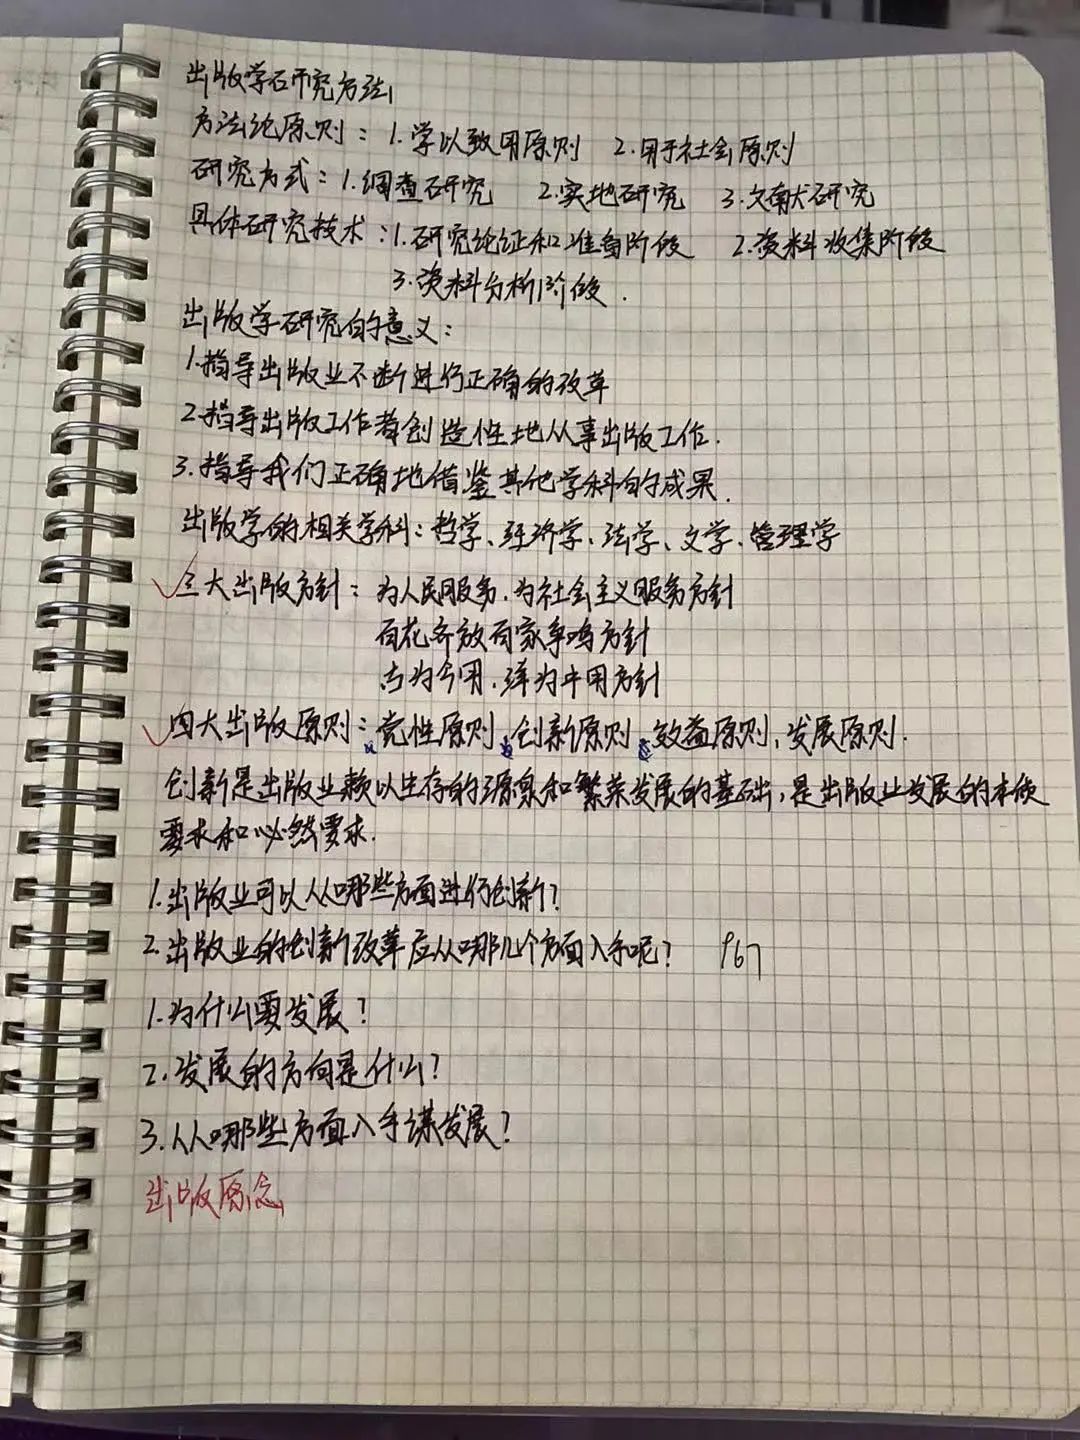 出版学研究方法
方法论原则：1.学以致用原则 2.用于社会原则
研究方式：1.调查研究 2.实地研究 3.文献研究
具体研究技术：1.研究论证和准备阶段 2.资料收集阶段
3.资料分析阶段.
出版学研究的意义：
1.指导出版业不断进行正确的改革
2.指导出版工作者创造性地从事出版工作.
3.指导我们正确地借鉴其他学科的成果.
出版学的相关学科：哲学、经济学、法学、文学、管理学
三大出版方针：为人民服务、为社会主义服务方针
百花齐放百家争鸣方针
古为今用、洋为中用方针
四大出版原则：党性原则、创新原则、效益原则、发展原则.
创新是出版业赖以生存的源泉和繁荣发展的基础，是出版业发展的本质
要求和必然要求.
1.出版业可以从哪些方面进行创新？
2.出版业的创新改革应从哪几个方面入手呢？ P67
1.为什么要发展？
2.发展的方向是什么？
3.从哪些方面入手谋发展？
出版